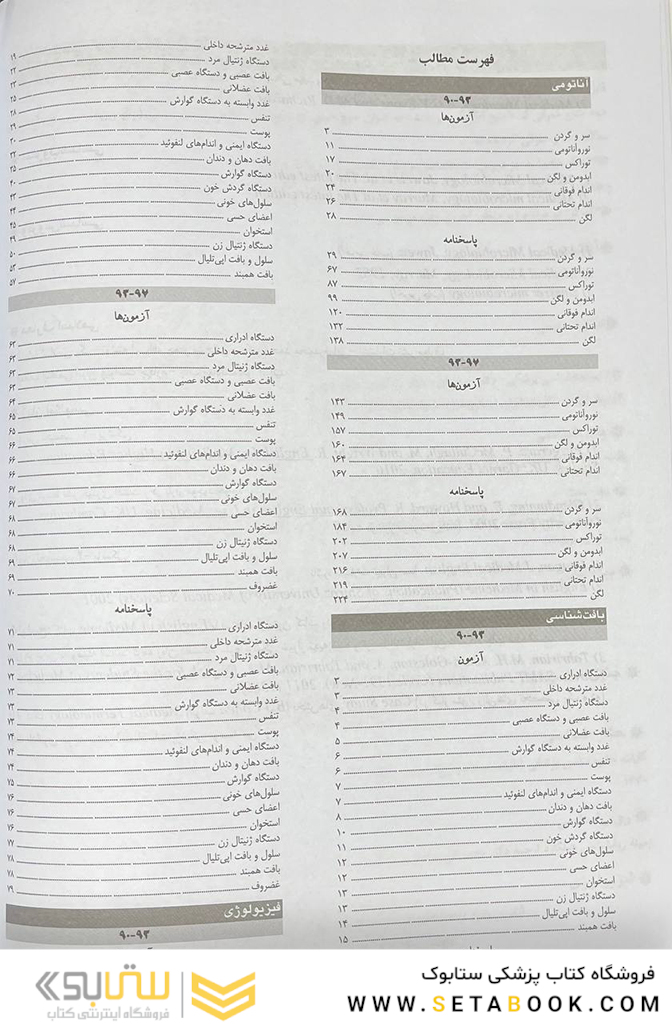 فهرست مطالب
آناتومی
۹۰-۹۳
آزمون‌ها
سر و گردن ۳
نوروآناتومی ۱۱
توراکس ۱۷
ابدومن و لگن ۲۰
اندام فوقانی ۲۴
اندام تحتانی ۲۶
لگن ۲۸
پاسخنامه
سر و گردن ۲۹
نوروآناتومی ۶۷
توراکس ۸۷
ابدومن و لگن ۹۹
اندام فوقانی ۱۲۰
اندام تحتانی ۱۳۲
لگن ۱۳۸
۹۳-۹۷
آزمون‌ها
سر و گردن ۱۴۳
نوروآناتومی ۱۴۹
توراکس ۱۵۷
ابدومن و لگن ۱۶۰
اندام فوقانی ۱۶۴
اندام تحتانی ۱۶۷
پاسخنامه
سر و گردن ۱۶۸
نوروآناتومی ۱۸۴
توراکس ۲۰۲
ابدومن و لگن ۲۰۷
اندام فوقانی ۲۱۶
اندام تحتانی ۲۱۹
لگن ۲۲۴
بافت‌شناسی
۹۰-۹۳
آزمون
دستگاه ادراری ۳
غدد مترشحه داخلی ۳
دستگاه ژنتیال مرد ۴
بافت عصبی و دستگاه عصبی ۴
بافت عضلانی ۵
غدد وابسته به دستگاه گوارش ۶
تنفس ۶
پوست ۷
دستگاه ایمنی و اندام‌های لنفوئید ۷
بافت دهان و دندان ۸
دستگاه گوارش ۱۰
دستگاه گردش خون ۱۱
سلول‌های خونی ۱۲
اعضای حسی ۱۲
استخوان ۱۳
دستگاه ژنتیال زن ۱۳
سلول و بافت اپی‌تلیال ۱۴
بافت همبند ۱۵
غدد مترشحه داخلی ۱۹
دستگاه ژنتیال مرد ۲۲
بافت عصبی و دستگاه عصبی ۲۳
بافت عضلانی ۲۵
غدد وابسته به دستگاه گوارش ۲۸
تنفس ۲۹
پوست ۳۰
دستگاه ایمنی و اندام‌های لنفوئید ۳۲
بافت دهان و دندان ۳۵
دستگاه گوارش ۴۰
دستگاه گردش خون ۴۳
سلول‌های خونی ۴۴
اعضای حسی ۴۵
استخوان ۴۹
دستگاه ژنتیال زن ۵۰
سلول و بافت اپی‌تلیال ۵۳
بافت همبند ۵۷
۹۳-۹۷
آزمون‌ها
دستگاه ادراری ۶۳
غدد مترشحه داخلی ۶۳
دستگاه ژنیتال مرد ۶۳
بافت عصبی و دستگاه عصبی ۶۳
بافت عضلانی ۶۴
غدد وابسته به دستگاه گوارش ۶۵
تنفس ۶۵
پوست ۶۶
دستگاه ایمنی و اندام‌های لنفوئید ۶۶
بافت دهان و دندان ۶۶
دستگاه گوارش ۶۷
سلول‌های خونی ۶۷
اعضای حسی ۶۸
استخوان ۶۸
دستگاه ژنیتال زن ۶۸
سلول و بافت اپی‌تلیال ۶۹
بافت همبند ۶۹
غضروف ۷۰
پاسخنامه
دستگاه ادراری ۷۱
غدد مترشحه داخلی ۷۱
دستگاه ژنیتال مرد ۷۱
بافت عصبی و دستگاه عصبی ۷۲
بافت عضلانی ۷۳
غدد وابسته به دستگاه گوارش ۷۳
تنفس ۷۳
پوست ۷۴
دستگاه ایمنی و اندام‌های لنفوئید ۷۴
بافت دهان و دندان ۷۴
دستگاه گوارش ۷۵
سلول‌های خونی ۷۶
اعضای حسی ۷۶
استخوان ۷۶
دستگاه ژنیتال زن ۷۷
سلول و بافت اپی‌تلیال ۷۸
بافت همبند ۷۸
غضروف ۷۹
فیزیولوژی
۹۰-۹۳
فروشگاه کتاب پزشکی ستابوک
WWW.SETABOOK.COM
ستابوک
فروشگاه اینترنتی کتاب